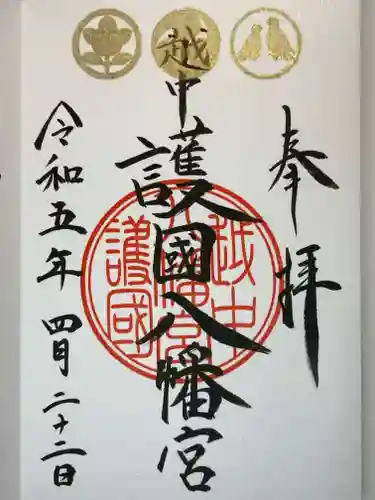 奉拝
越中
護國八幡宮
越中
八幡宮
護國
令和五年 四月 二十二日